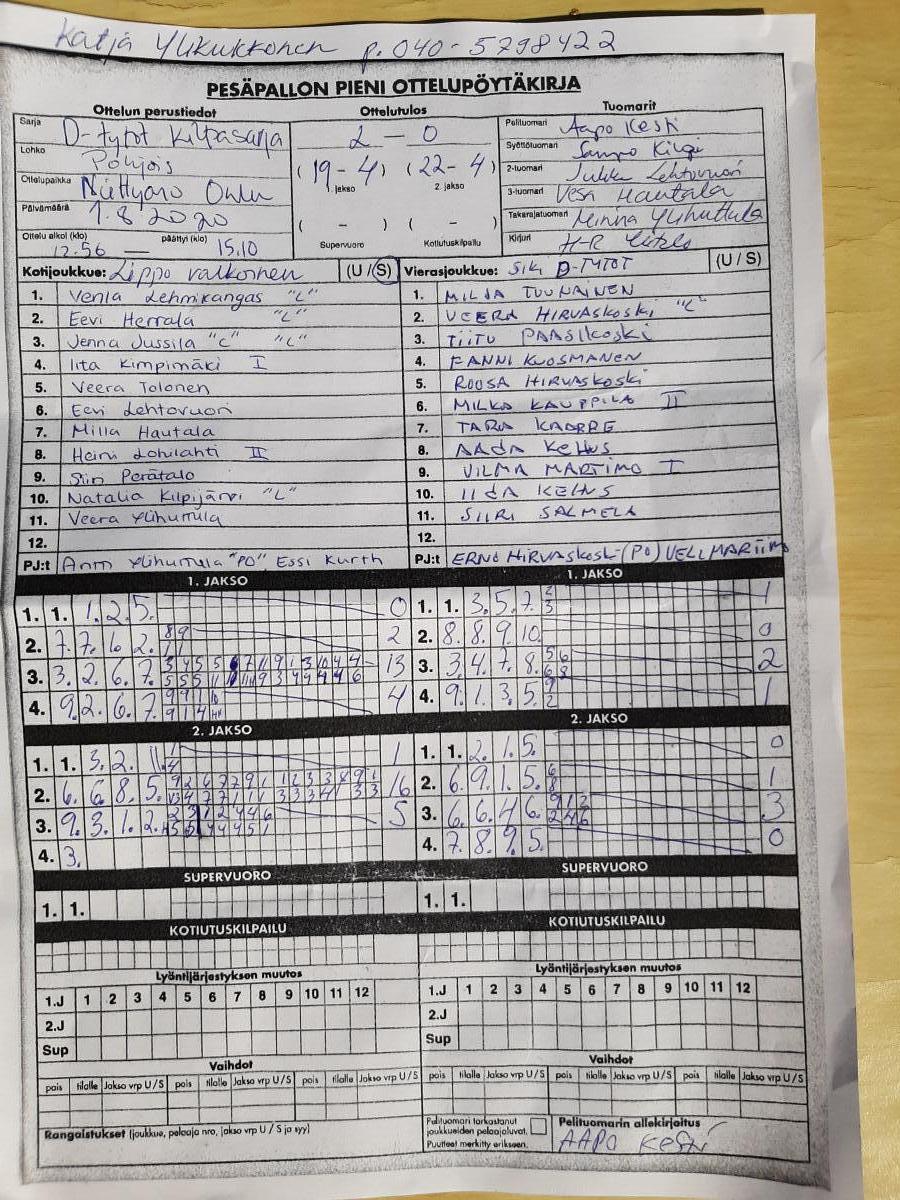 Katja Ylikukkonen p. 040-5798422
PESÄPALLON PIENI OTTELUPÖYTÄKIRJA
Ottelun perustiedot
Sarja D-tytöt Kilpasarja
Lohko Pohjois
Ottelupaikka Niittyaro Oulu
Päivämäärä 1.8 2020
Ottelu alkoi (klo) 12.56 — päättyi (klo) 15.10
Ottelutulos
2 - 0
(19 - 4) (22 - 4)
1. jakso 2. jakso
( - ) ( - )
Supervuoro Kotiutuskilpailu
Tuomarit
Pelituomari Aapo Keski
Syöttötuomari Sampo
2-tuomari Jukka Lehtovuori
3-tuomari Vesa Hautala
Takarajatuomari Minna Ylihuttula
Kirjuri H-R
Kotijoukkue: Lippo valkoinen (U / S)
1. Venla Lehmikangas "L"
2. Eevi Herrala "L"
3. Jenna Jussila "C" "L"
4. Iita Kimpimäki I
5. Veera Tolonen
6. Eevi Lehtovuori
7. Milla Hautala
8. Heini Lohilahti II
9. Siiri Perätalo
10. Natalia Kilpijärvi "L"
11. Veera Ylihumula
12.
PJ:t Anni Ylihumula "PO" Essi Kurth
Vierasjoukkue: SiKi D-TYTÖT (U / S)
1. MILJA TUUNAINEN
2. VEERA HIRVASKOSKI "C"
3. TIITU PAASIKOSKI
4. FANNI KUOSMANEN
5. ROOSA HIRVASKOSKI
6. MILKA KAUPPILA II
7. TARA KAARRE
8. AADA KEHUS
9. VILMA MARTIMO I
10. IIDA KEHUS
11. SIIRI SALMELA
12.
PJ:t ERNO HIRVASKOSKI (PO) VELI MARTIIMO
1. JAKSO
1. 1. 1. 2. 5. 0
2. 7. 7. 6. 2. 2
3. 3. 2. 6. 7. 13
4. 9. 2. 6. 7. 4
1. JAKSO
1. 1. 3. 5. 7. 2 3 1
2. 8. 8. 9. 10. 0
3. 3. 4. 7. 8. 5 6 6 8 2
4. 9. 1. 3. 5. 9 2 1
2. JAKSO
1. 1. 3. 2. 11. 1 4 1
2. 6. 6. 8. 5. 16
3. 9. 3. 1. 2. 5
4. 3.
2. JAKSO
1. 1. 2. 1. 5. 0
2. 6. 9. 1. 5. 6 8 1
3. 6. 6. 4. 6. 9 1 2 2 4 6 3
4. 7. 8. 9. 5. 0
SUPERVUORO
1. 1.
SUPERVUORO
1. 1.
KOTIUTUSKILPAILU
KOTIUTUSKILPAILU
Lyöntijärjestyksen muutos
1.J 1 2 3 4 5 6 7 8 9 10 11 12
2.J
Sup
Lyöntijärjestyksen muutos
1.J 1 2 3 4 5 6 7 8 9 10 11 12
2.J
Sup
Vaihdot
pois tilalle Jakso vrp U / S pois tilalle Jakso vrp U / S pois tilalle Jakso vrp U / S
Vaihdot
pois tilalle Jakso vrp U / S pois tilalle Jakso vrp U / S pois tilalle Jakso vrp U / S
Rangaistukset (joukkue, pelaaja nro, jakso vrp U / S ja syy)
Pelituomari tarkastanut
joukkueiden pelaajaluvat.
Puutteet merkitty erikseen.
Pelituomarin allekirjoitus
AAPO KESKI